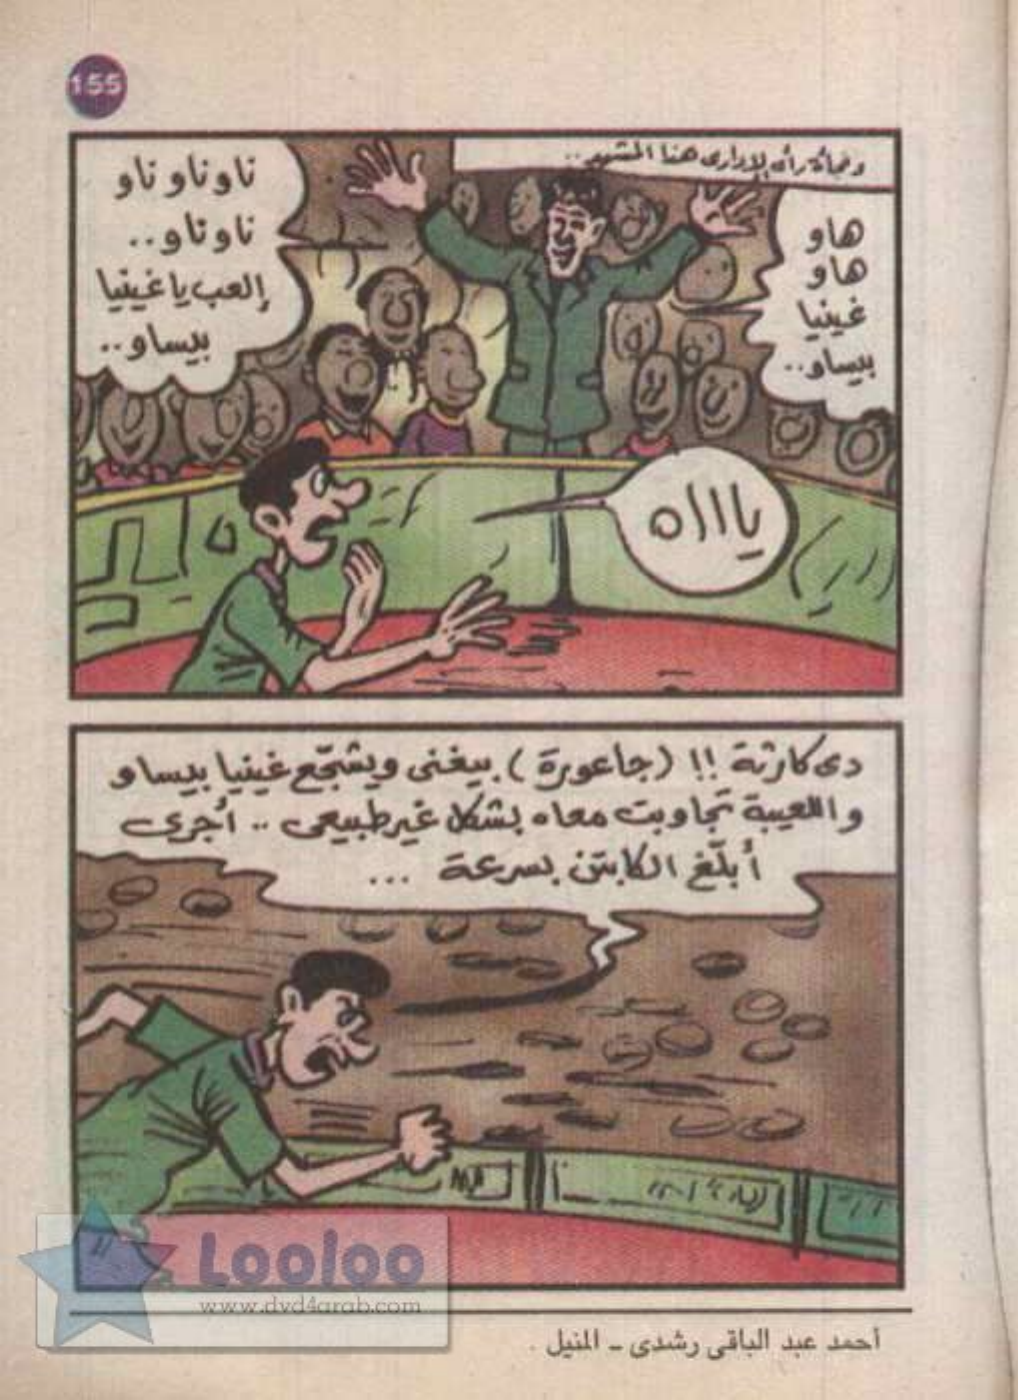 155
وفجأة رأى الإدارى هذا المشهد..
هاو
هاو
غينيا
بيساو..
ناو ناو ناو
ناو ناو..
إلعب يا غينيا
بيساو..
ياااه
دى كارثة !! (جاعورة) بيغنى ويشجّع غينيا بيساو
واللعيبة تجاوبت معاه بشكل غير طبيعى .. أجرى
أبلّغ الكابتن بسرعة ...
Looloo
www.dvd4arab.com
أحمد عبد الباقى رشدى - المنيل .